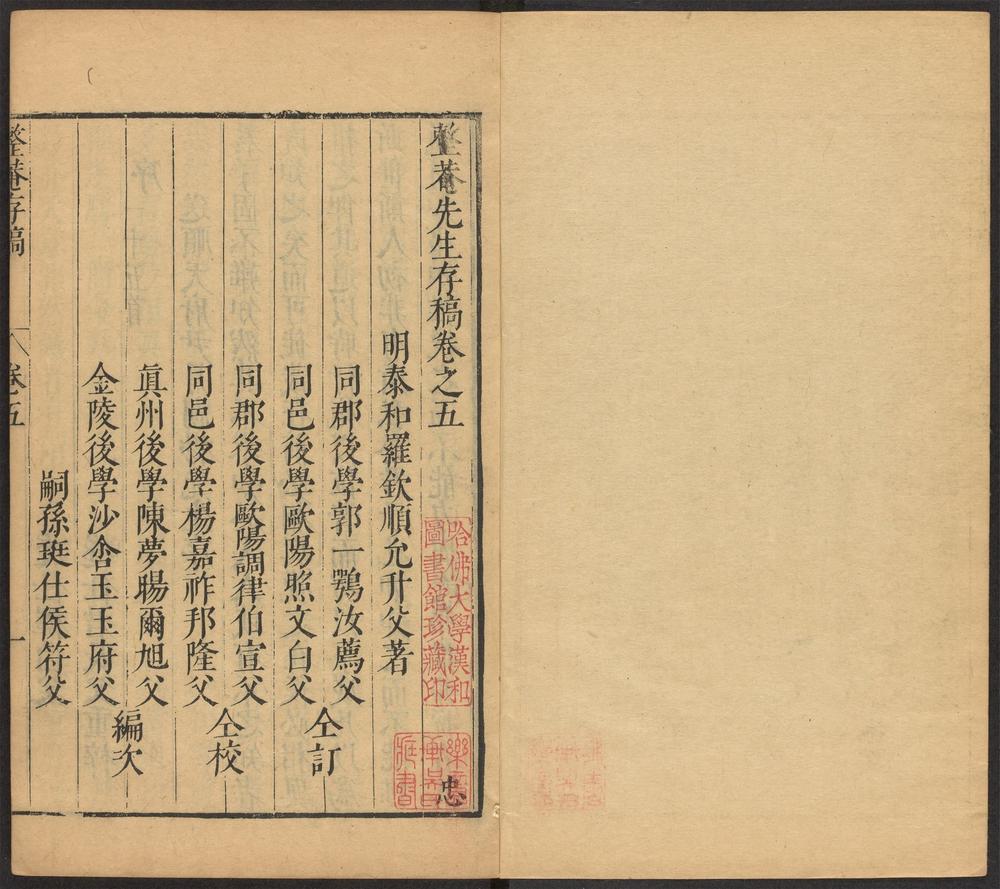 整菴先生存稿卷之五
忠
明泰和羅欽順允升父著
同郡後學郭一鶚汝薦父
仝訂
同邑後學歐陽照文白父
同郡後學歐陽調律伯宣父
仝校
同邑後學楊嘉祚邦隆父
眞州後學陳夢暘爾旭父
編次
金陵後學沙含玉玉府父
嗣孫珽仕侯符父
整菴存稿
卷五
一
哈佛大學漢和
圖書館珍藏印